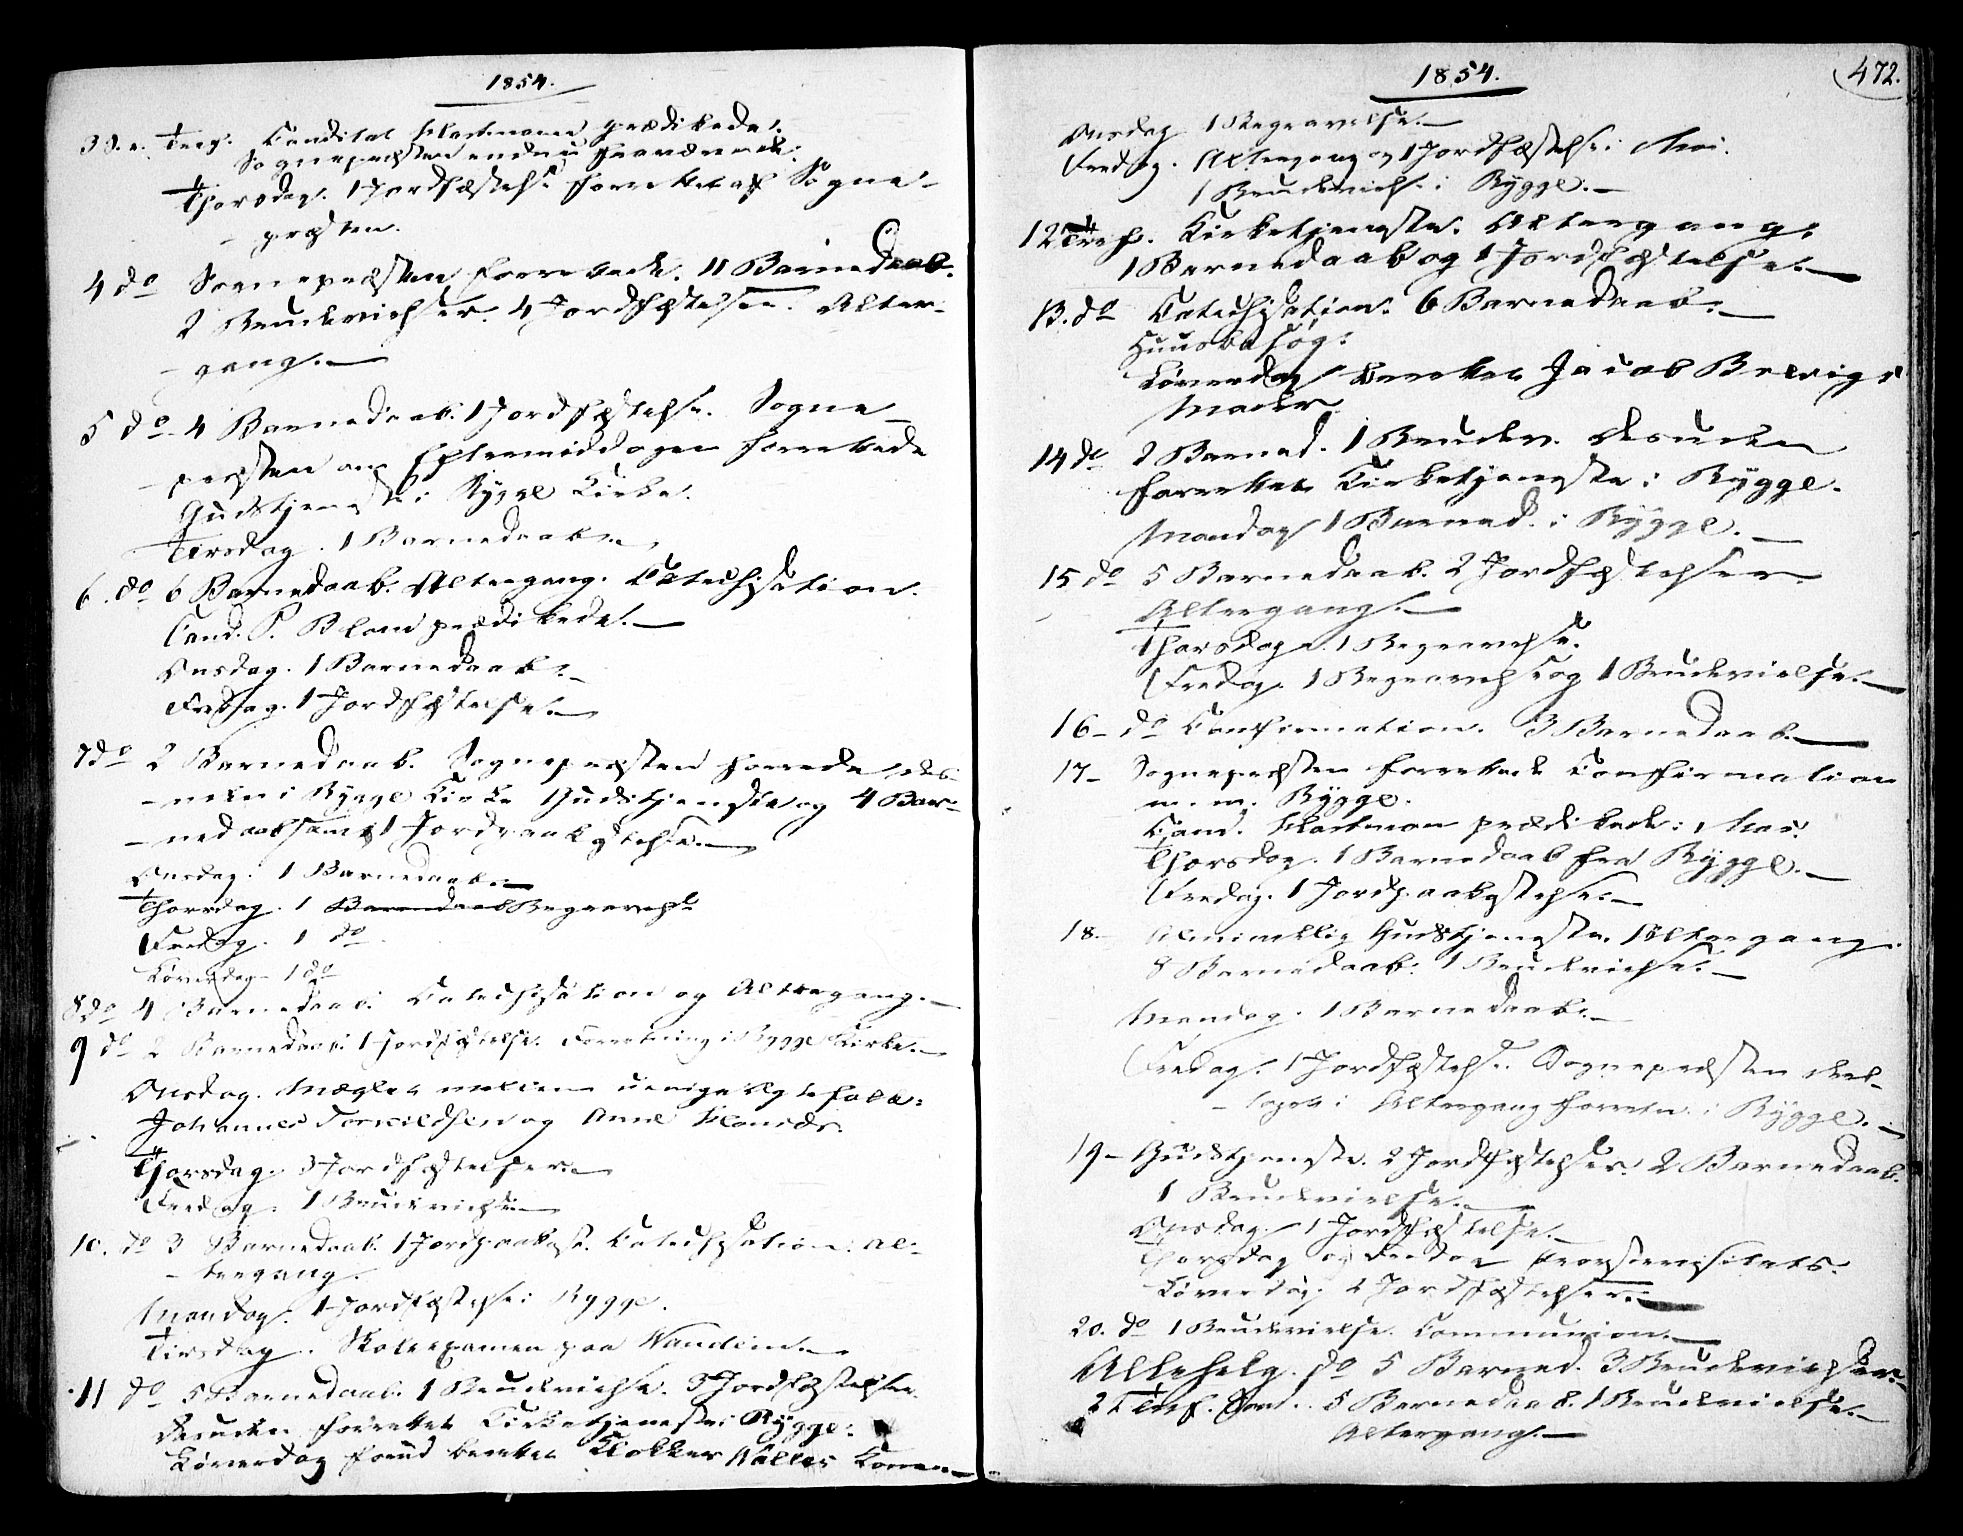 1854.
3 S. e. Tref. Candidat Hartmann prædikede.
Sognepræsten endnu fraværende.
Thorsdag. 1 Jordfæstelse forrettet af Sogne-
- præsten.
4 do Sognepræsten forrettede. 11 Barnedaab.
2 Brudevielser. 4 Jordfæstelser. Alter-
- gang. -
5 do - 4 Barnedaab. 1 Jordfæstelse. Sogne-
- præsten om Eftermiddagen forrettede
Gudstjeneste i Rygge Kirke.
Tirsdag. 1 Barnedaab.
6. do 6 Barnedaab. Altergang. Catechisation.
Cand. P. Blom prædikede. -
Onsdag. 1 Barnedaab. -
Fredag. 1 Jordfæstelse. -
7 do 2 Barnedaab. Sognepræsten
- i Rygge Kirke Gudstjeneste og 4 Bar-
- nedaab samt 1 Jordpaakastelse. -
Onsdag. 1 Barnedaab. -
Thorsdag. 1 Barnedaab Begravelse
Fredag. 1 do.
Løverdag - 1 do
8 do 4 Barnedaab. Catechisation og Altergang. -
9 do 2 Barnedaab. 1 Jordfæstelse. Forretning i Rygge Kirke. -
Onsdag. Mæglet mellem uenige Ægtefolk:
Johannes Torkildsen og Anne
Thorsdag. 3 Jordfæstelser. -
Fredag. 1 Brudevielse. -
10. do 3 Barnedaab. 1 Jordpaakast. Catechisation. Al-
- tergang.
Mandag. 1 Jordfæstelse i Rygge.
Tirsdag. Skoleexamen paa Vandem. -
11 do 5 Barnedaab. 1 Brudevielse. 3 Jordfæstelser.
Desuden forrettet Kirketjeneste i Rygge.
Løverdag forud berettet Klokker Kone. -
1854.
472.
Onsdag 1 Begravelse. -
Fredag. Altergang og 1 Jordfæstelse i Mos.
1 Brudevielse i Rygge. -
12 Tref. Kirketjeneste. Altergang.
1 Barnedaab og 1 Jordfæstelse. -
13. do Catechisation. 6 Barnedaab. -
Huusbesøg.
Løverdag berettet Jacob
Moder.
14 do 2 Barned. 1 Brudev. desuden
forrettet Kirketjeneste i Rygge.
Mandag 1 Barned. i Rygge. -
15 do 5 Barnedaab. 2 Jordfæstelser.
Altergang. -
Thorsdag. 1 Begravelse.
Fredag. 1 Begravelse og 1 Brudevielse. -
16 - do Confirmation. 3 Barnedaab. -
17 - Sognepræsten forrettede Confirmation
m. m. Rygge.
Cand. Hartman prædikede i Mos.
Thorsdag. 1 Barnedaab fra Rygge. -
Fredag. 1 Jordpaakastelse. -
18 - Almindelig Gudstjeneste. Altergang.
8 Barnedaab. 1 Brudevielse. -
Mandag. 1 Barnedaab. -
Fredag. 1 Jordfæstelse. Sognepræsten del-
- toget i Altergang forretn. i Rygge. -
19 - Gudstjeneste. 2 Jordfæstelser. 2 Barnedaab.
1 Brudevielse. -
Onsdag. 1 Jordfæstelse. -
Thorsdag og Fredag Provstevisitats.
Løverdag. 2 Jordfæstelser. -
20. do 1 Brudevielse. Communion. -
Allehelg. do 5 Barned. 3 Brudevielser. -
5 Barnedaab. 1 Brudevielse. -
Altergang. -